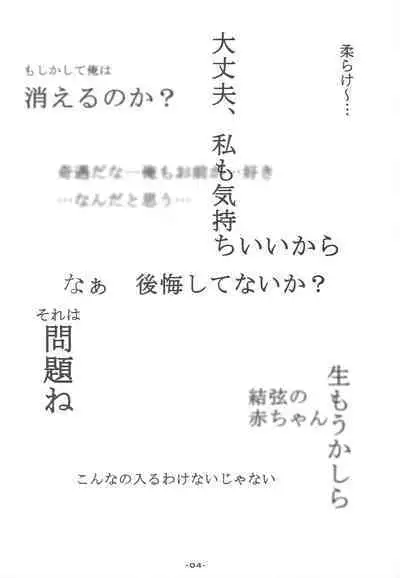 柔らけ～…
大丈夫、私も気持
ちいいから
もしかして俺は
消えるのか？
奇遇だな―俺もお前が…好き
…なんだと思う…
なぁ　後悔してないか？
それは
問題ね
生もうかしら
結弦の
赤ちゃん
こんなの入るわけないじゃない
-04-